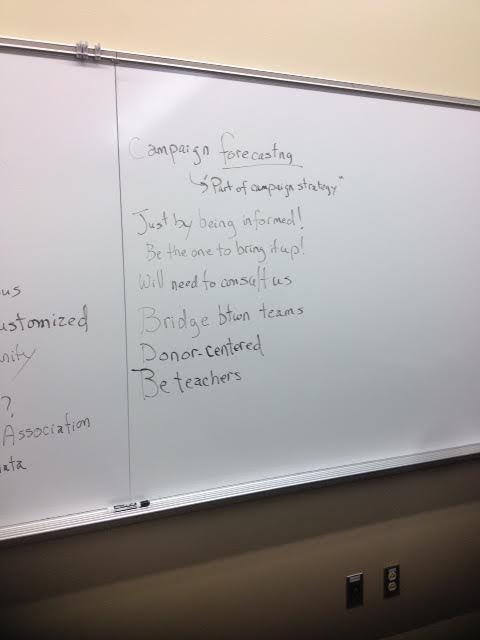 Campaign forecasting
"Part of campaign strategy"
Just by being informed!
Be the one to bring it up!
Will need to consult us
Bridge btwn teams
Donor-centered
Be teachers
us
ustomized
nity
?
Association
ata